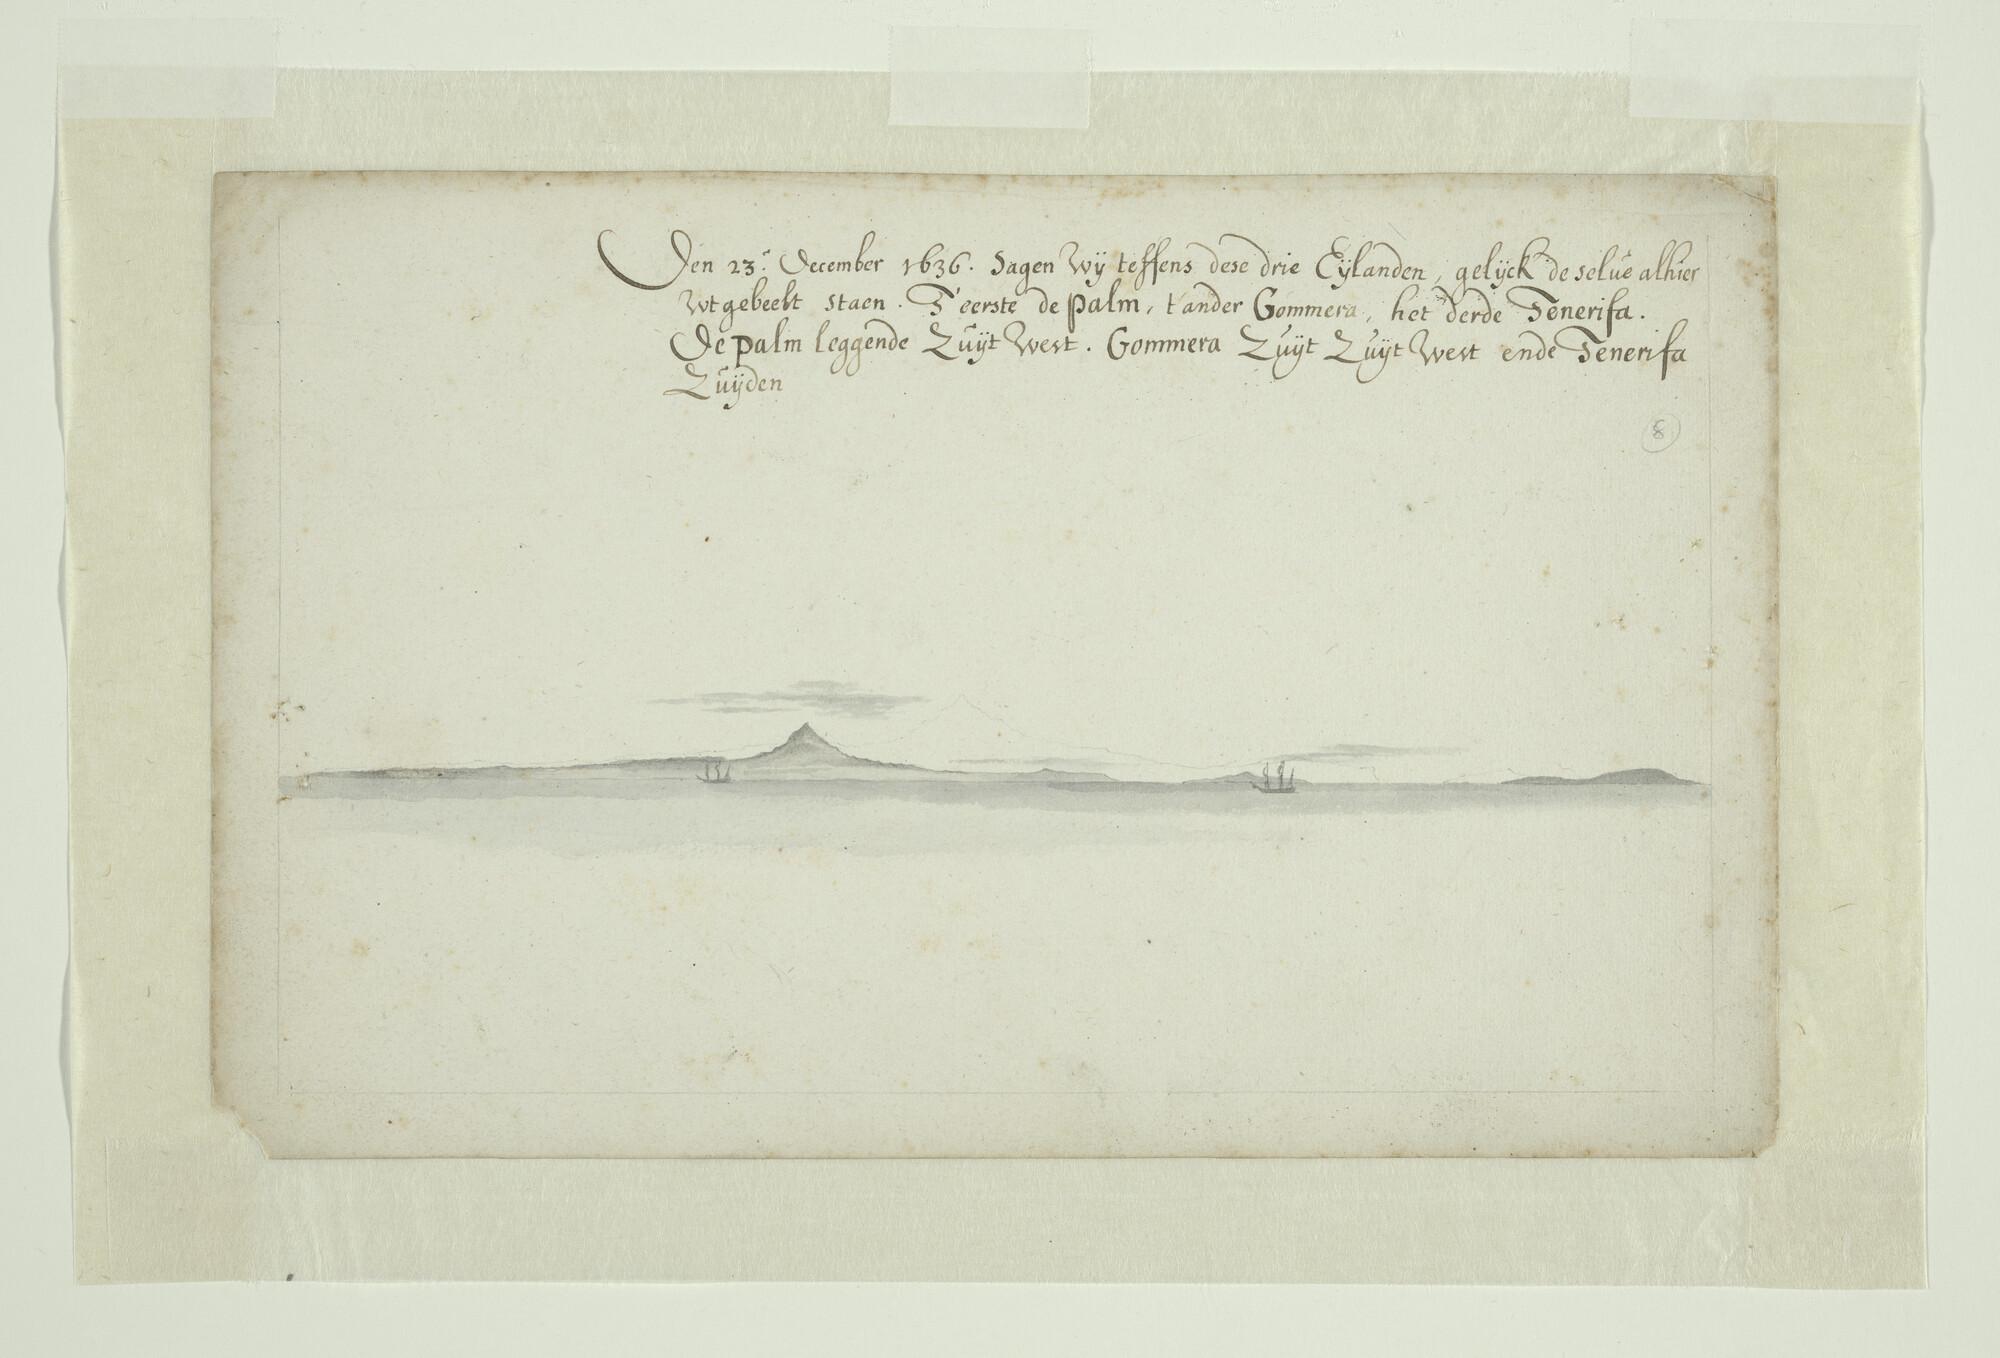 Den 23.e December 1636. Sagen wij teffens dese drie Eijlanden, gelijck de selve alhier
wtgebeelt staen. T'eerste de palm, t'ander Gommera, het derde Tenerifa.
De palm leggende Zuijt west. Gommera Zuijt Zuijt west ende Tenerifa
Zuijden
8